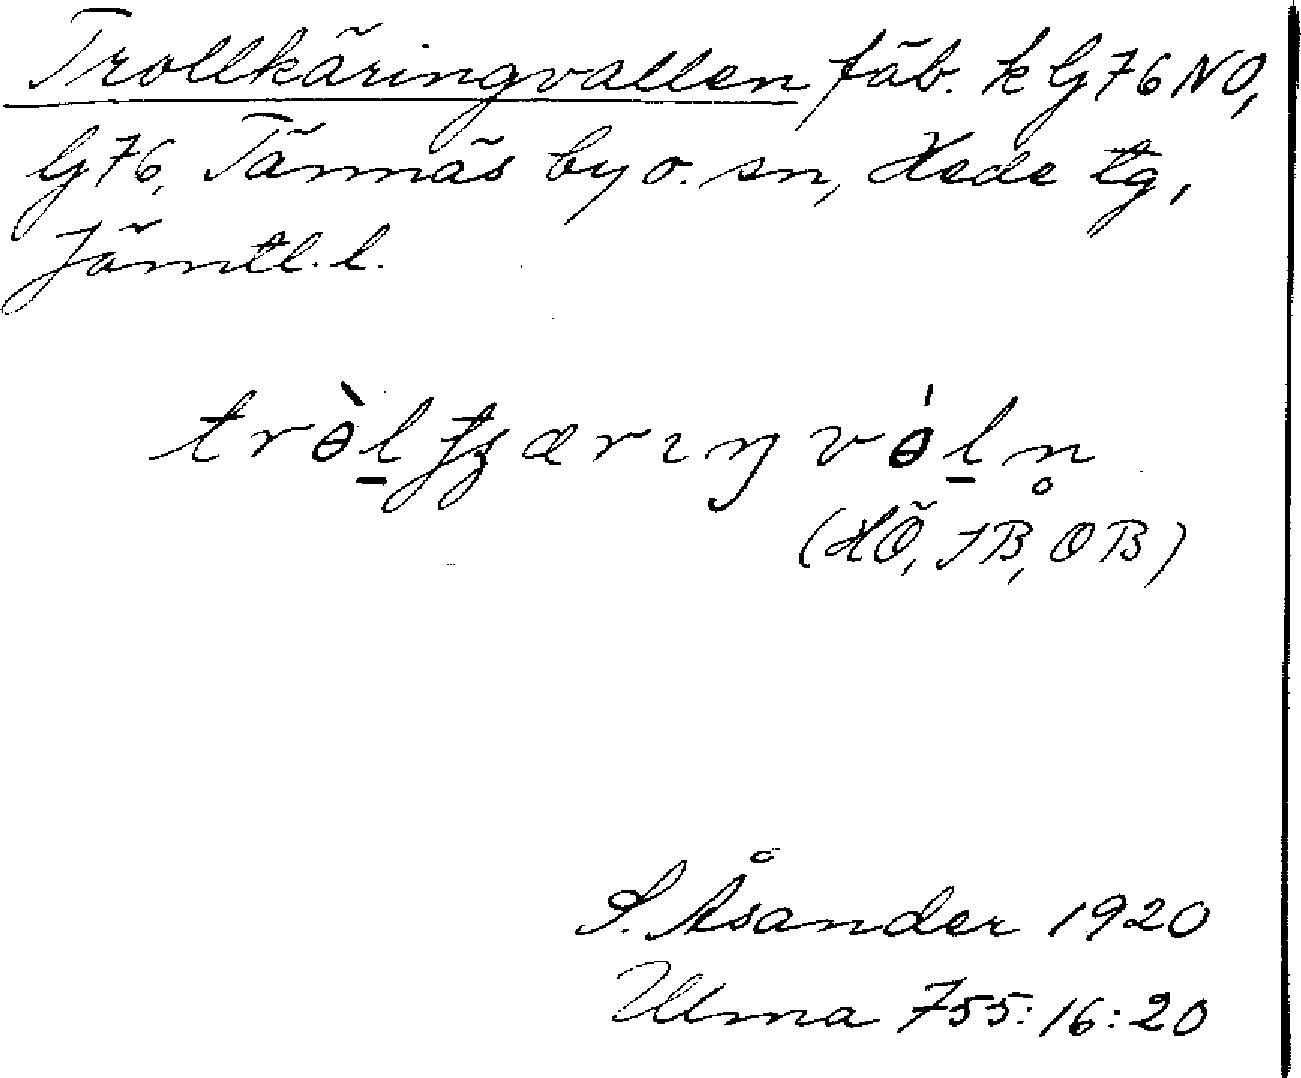 Trollkäringvallen fäb. k G76NO,
G76, Tännäs by o. sn, Hede tg,
Jämtl. l.
(HÖ, JB, OB)
S. Åsander 1920
Ulma 755:16:20